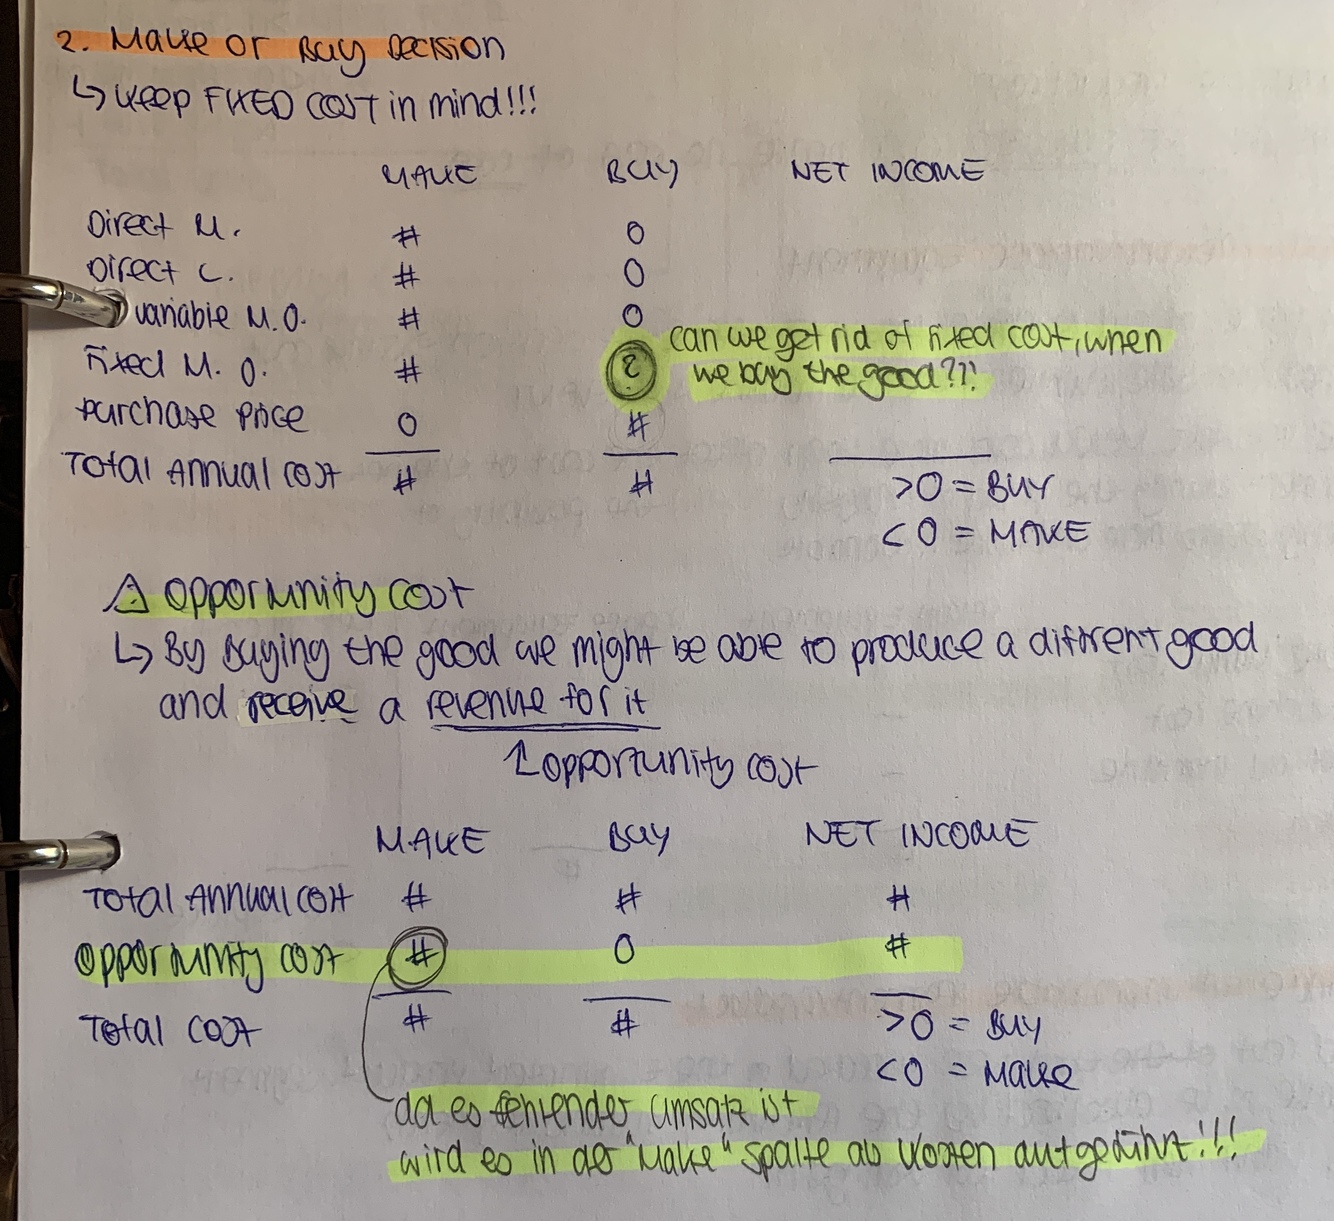 2. Make or Buy Decision
↳ Keep FIXED COST in mind!!!
MAKE BUY NET INCOME
Direct M. # 0
Direct L. # 0
variable M.O. # 0
Fixed M. O. # ? can we get rid of fixed cost, when
we buy the good??!
Purchase Price 0 #
Total Annual cost # # >0 = BUY
<0 = MAKE
⚠ Opportunity cost
↳ By buying the good we might be able to produce a different good
and receive a revenue for it
↑ opportunity cost
MAKE BUY NET INCOME
Total Annual cost # # #
Opportunity cost # 0 #
Total cost # # >0 = BUY
<0 = Make
da es fehlender Umsatz ist
wird es in der "Make" Spalte als Kosten aufgeführt!!!